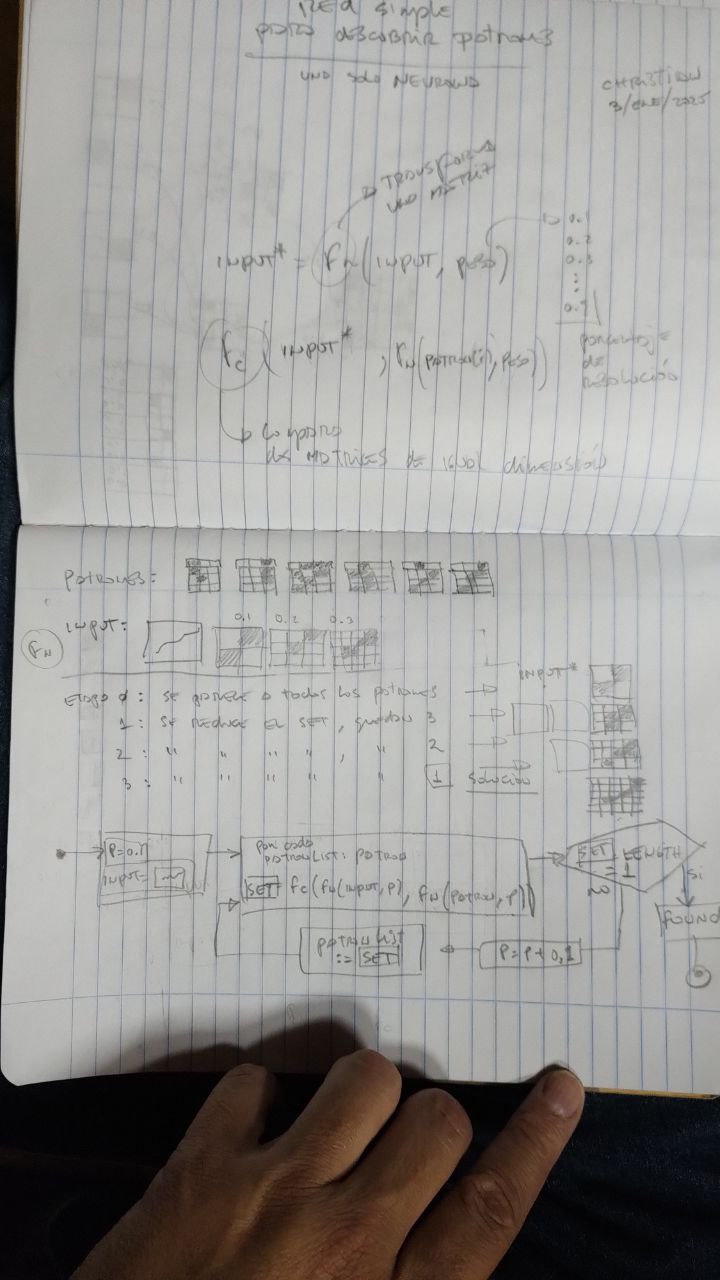 RED SIMPLE
PARA DESCUBRIR PATRONES
UNA SOLA NEURONA
CHRISTIAN
3/ENE/2025
TRANSFORMA
UNA MATRIZ
INPUT* = fN(INPUT, PESO)
0.1
0.2
0.3
...
0.9
PORCENTAJE
DE
RESOLUCIÓN
fC (INPUT*, fN(PATRON(i), PESO))
COMPARA
DOS MATRICES DE IGUAL DIMENSIÓN
PATRONES:
INPUT:
0.1 0.2 0.3
fN
ETAPA 0: SE PARECE A TODOS LOS PATRONES
1: SE REDUCE EL SET, QUEDAN 3
2: " " " ", " 2
3: " " " " " 1 SOLUCIÓN
INPUT*
P=0.1
INPUT=
POR CADA
PATRONLIST: PATRON
SET fC(fN(INPUT,P), fN(PATRON,P))
SET LENGTH
= 1
SI
NO
FOUND
P=P+0,1
PATRONLIST
:= SET